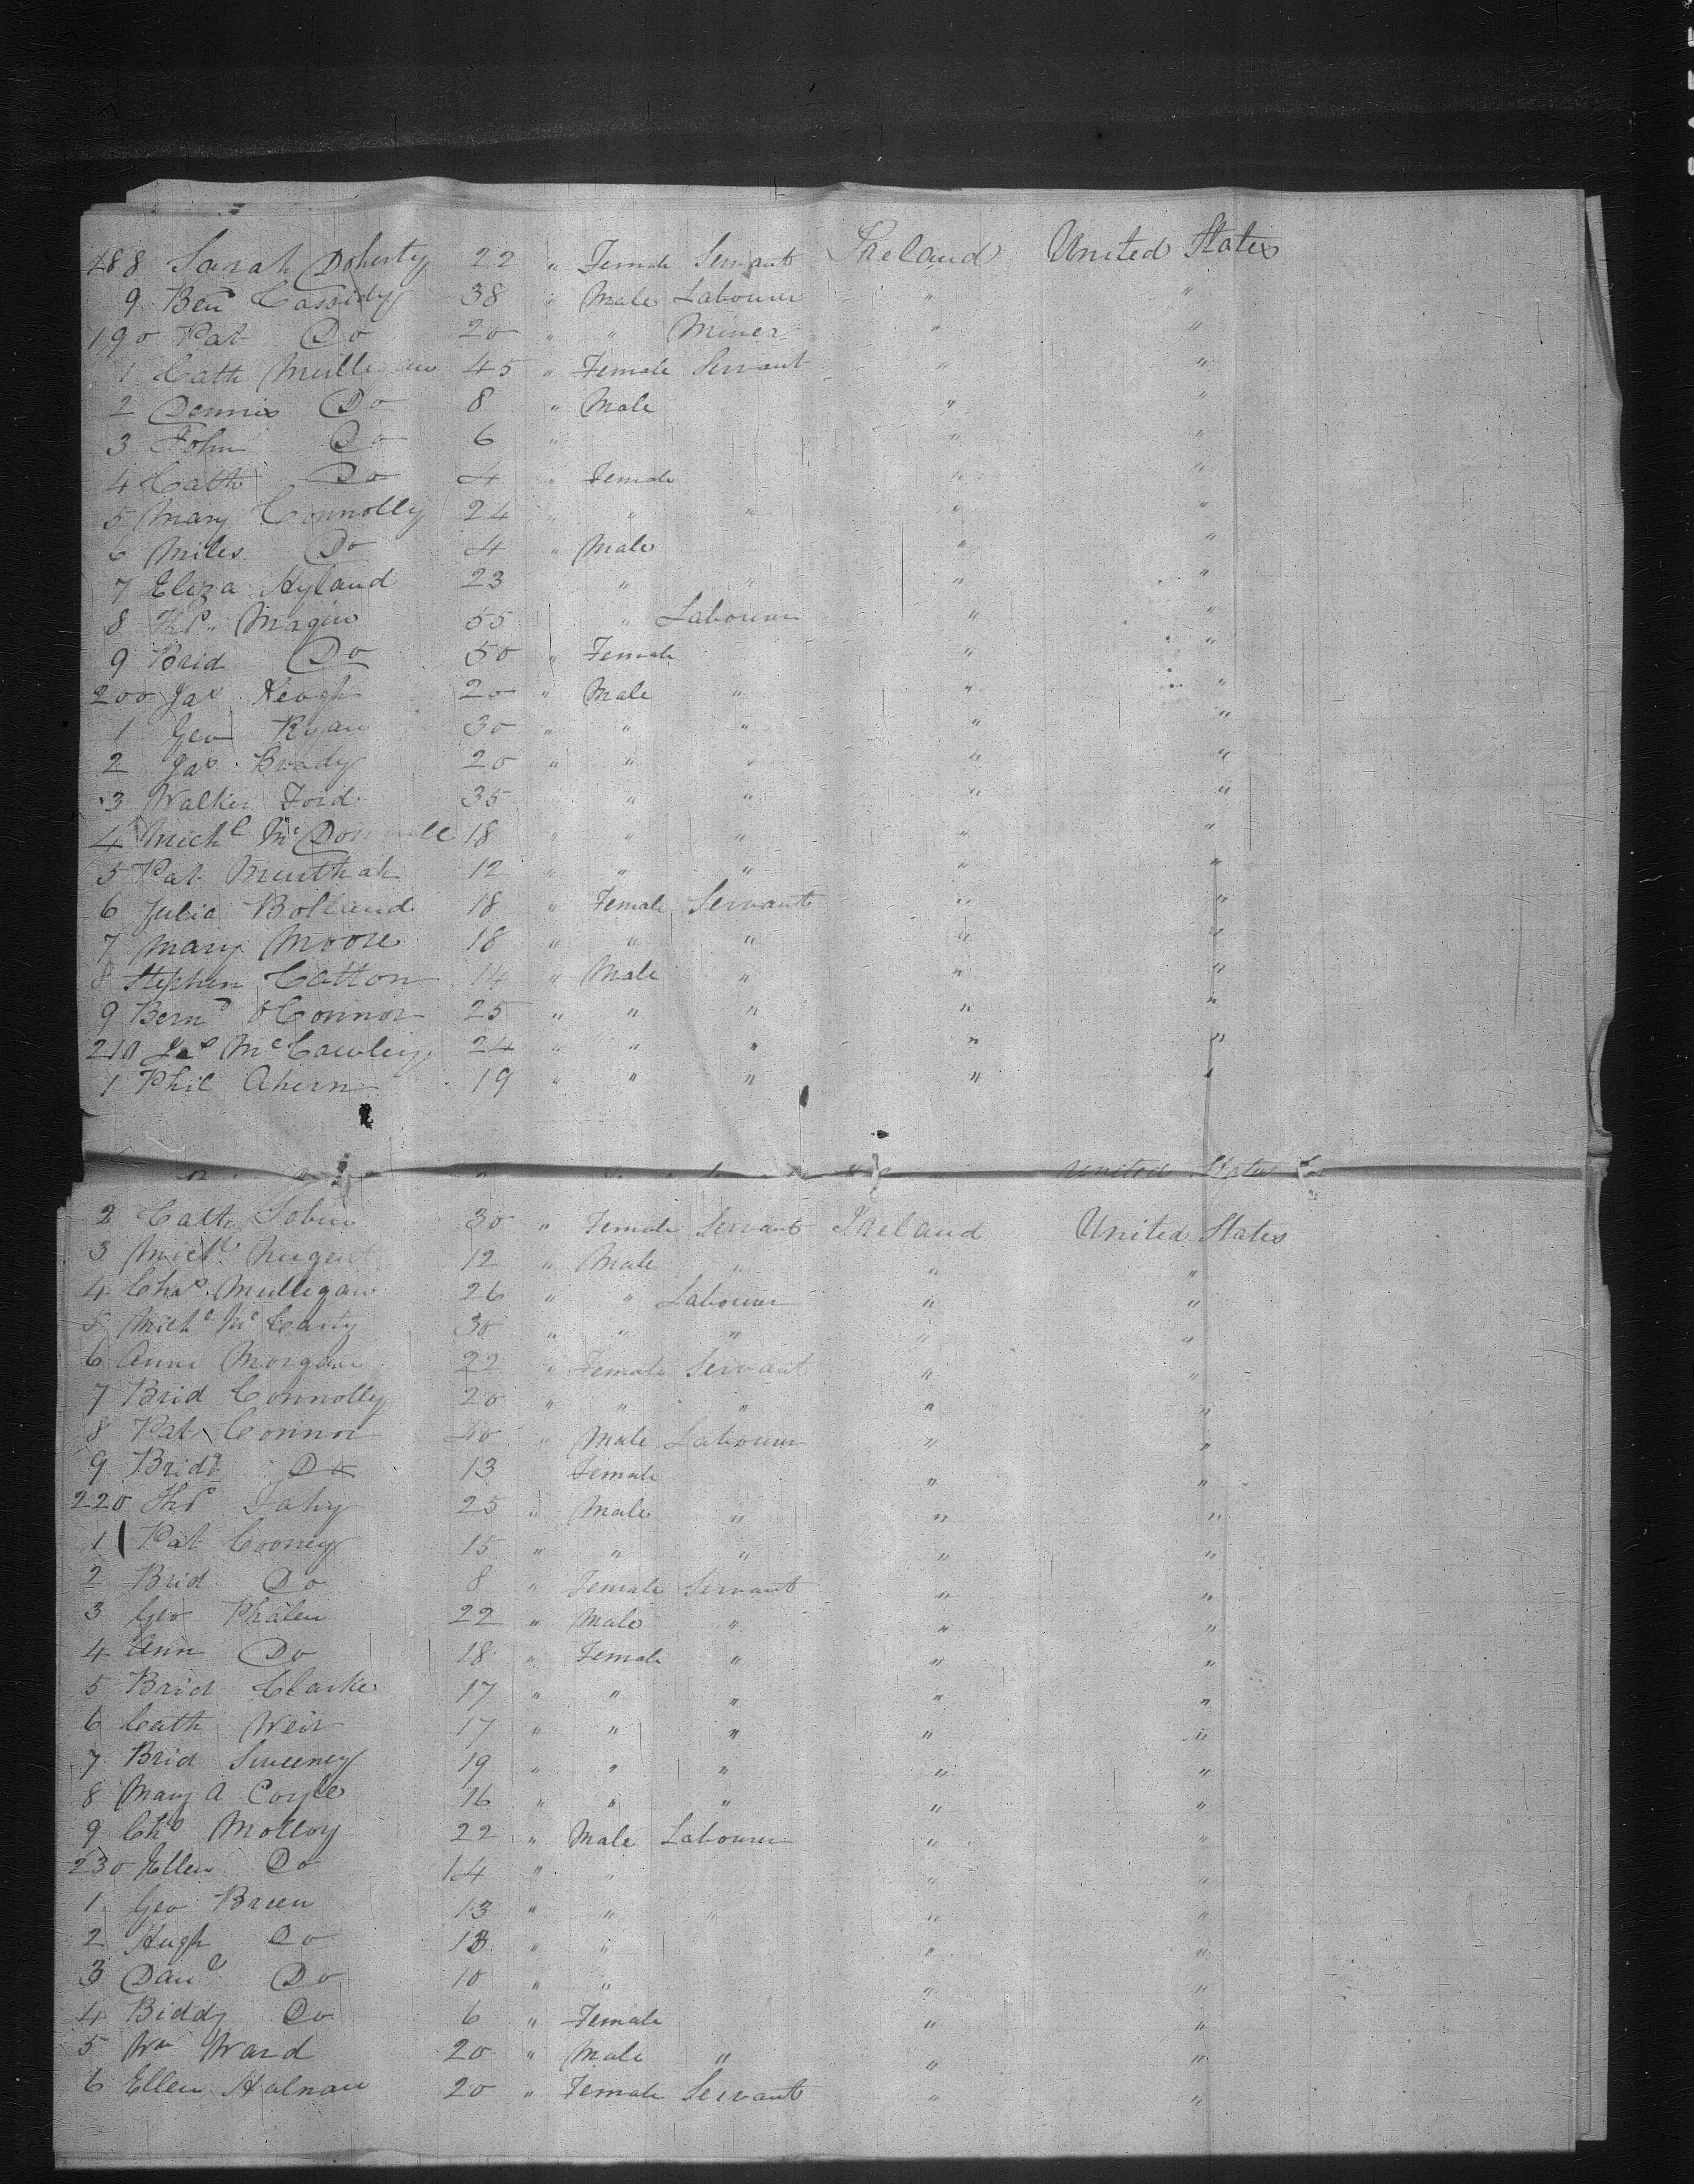 188 Sarah Doherty 22 " Female Servant Ireland United States
9 Ben Cassidy 38 " Male Labourer " "
190 Pat Do 20 " " Miner " "
1 Cath Mulligan 45 " Female Servant " "
2 Dennis Do 8 " Male " "
3 John Do 6 " " "
4 Cath Do 4 " Female " "
5 Mary Connolly 24 " " " " "
6 Miles Do 4 " Male " "
7 Eliza Hyland 23 " " " "
8 Thos Magin 55 " Labourer " "
9 Brid Do 50 " Female " "
200 Jas Keogh 20 " Male " " "
1 Geo Ryan 30 " " " " "
2 Jas Brady 20 " " " " "
3 Walker Ford 35 " " " "
4 Michl McDonnell 18 " " " " "
5 Pat 12 " " " " "
6 Julia Bolland 18 " Female Servant " "
7 Mary Moore 18 " " " " "
8 Stephen Catton 14 " Male " " "
9 Bernd OConnor 25 " " " " "
210 Jas McCawley 24 " " " " "
1 Phil Ahern 19 " " " " "
United States
2 Cath Tobin 30 " Female Servant Ireland United States
3 Michl Nugent 12 " Male " " "
4 Chas Mulligan 26 " " Labourer " "
5 Michl McCarty 30 " " " " "
6 Anne Morgan 22 " Female Servant " "
7 Brid Connolly 20 " " " " "
8 Pat Connor 40 " Male Labourer " "
9 Bridt Do 13 Female " "
220 Thos Fahy 25 " Male " " "
1 Pat Cooney 15 " " " " "
2 Brid Do 8 " Female Servant " "
3 Geo Phalen 22 " Male " " "
4 Ann Do 18 " Female " " "
5 Brid Clarke 17 " " " " "
6 Cath Weir 17 " " " " "
7 Brid Sweeney 19 " " " " "
8 Mary A Coyle 16 " " " " "
9 Chs Molloy 22 " Male Labourer " "
230 Ellen Do 14 " " " "
1 Geo Breen 13 " " " " "
2 Hugh Do 13 " " " "
3 Danl Do 10 " " " "
4 Biddy Do 6 " Female " "
5 Wm Ward 20 " Male " " "
6 Ellen Halnan 20 " Female Servant " "